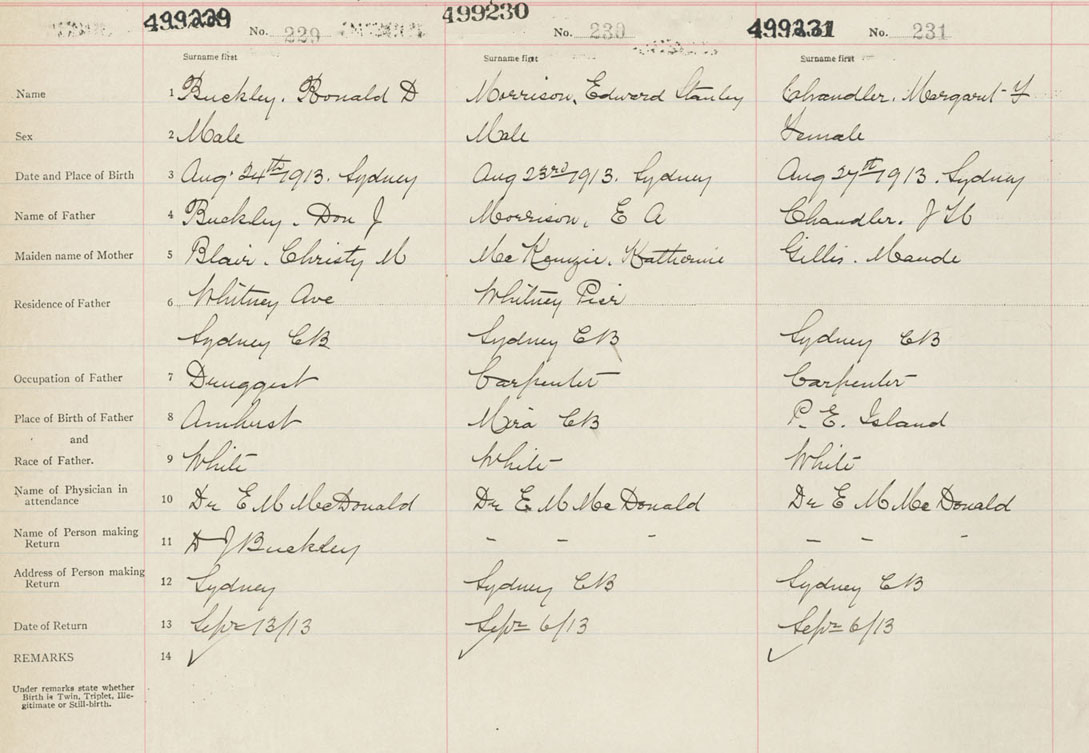 499229 No. 229 499230 No. 230 499231 No. 231
Surname first Surname first Surname first
Name 1 Buckley, Ronald D Morrison, Edward Stanley Chandler, Margaret
Sex 2 Male Male Female
Date and Place of Birth 3 Aug 24th 1913. Sydney Aug 23rd 1913. Sydney Aug 27th 1913. Sydney
Name of Father 4 Buckley, Don J Morrison, E A Chandler, J
Maiden name of Mother 5 Blair, Christy M McKenzie, Katherine Gillis, Maude
Residence of Father 6 Whitney Ave Whitney Pier
Sydney CB Sydney CB Sydney CB
Occupation of Father 7 Druggest Carpenter Carpenter
Place of Birth of Father 8 Amherst Mira CB P. E. Island
and
Race of Father. 9 White White White
Name of Physician in attendance 10 Dr E M McDonald Dr E M McDonald Dr E M McDonald
Name of Person making Return 11 D J Buckley - - - - - -
Address of Person making Return 12 Sydney Sydney CB Sydney CB
Date of Return 13 Sept 13/13 Sept 6/13 Sept 6/13
REMARKS 14
Under remarks state whether
Birth is Twin, Triplet, Ille-
gitimate or Still-birth.